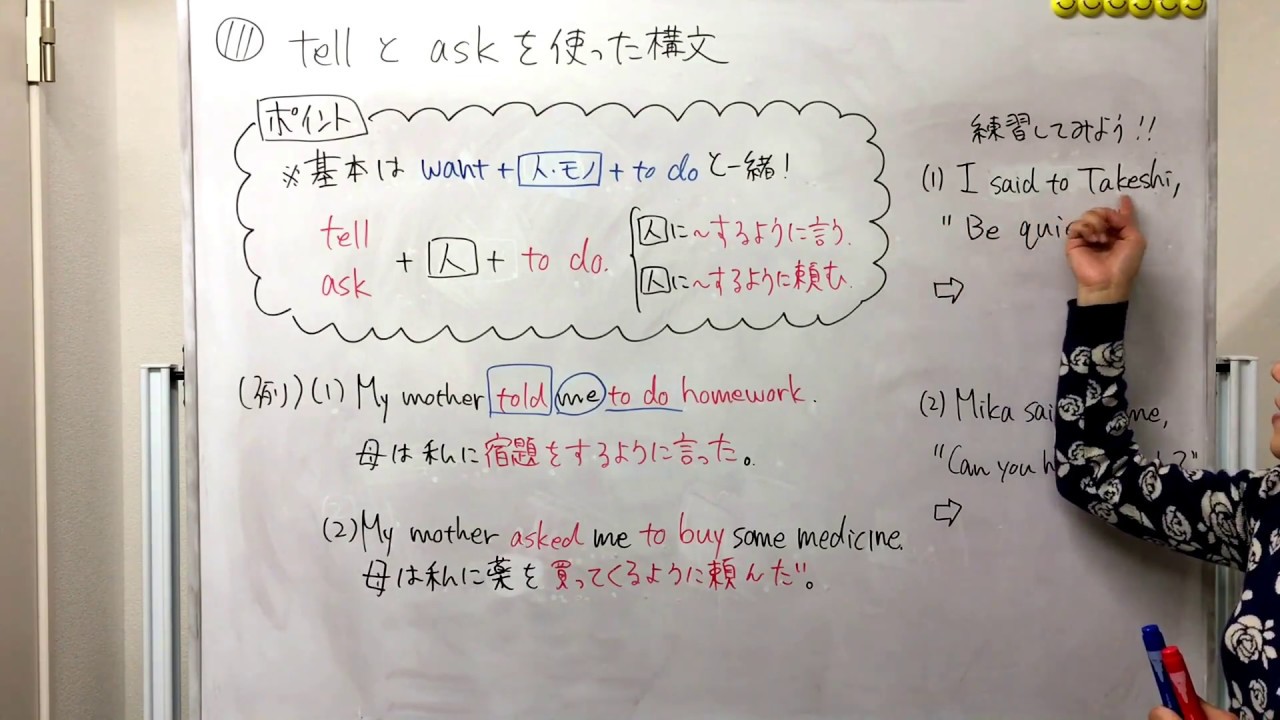 ⑪ tell と ask を使った構文
ポイント
※基本は want + 人・モノ + to do と一緒!
tell
ask
+ 人 + to do.
人に~するように言う.
人に~するように頼む.
(例)(1) My mother told me to do homework.
母は私に宿題をするように言った。
(2) My mother asked me to buy some medicine.
母は私に薬を買ってくるように頼んだ。
練習してみよう!!
(1) I said to Takeshi,
" Be
⇨
(2) Mika me,
"Can you
⇨